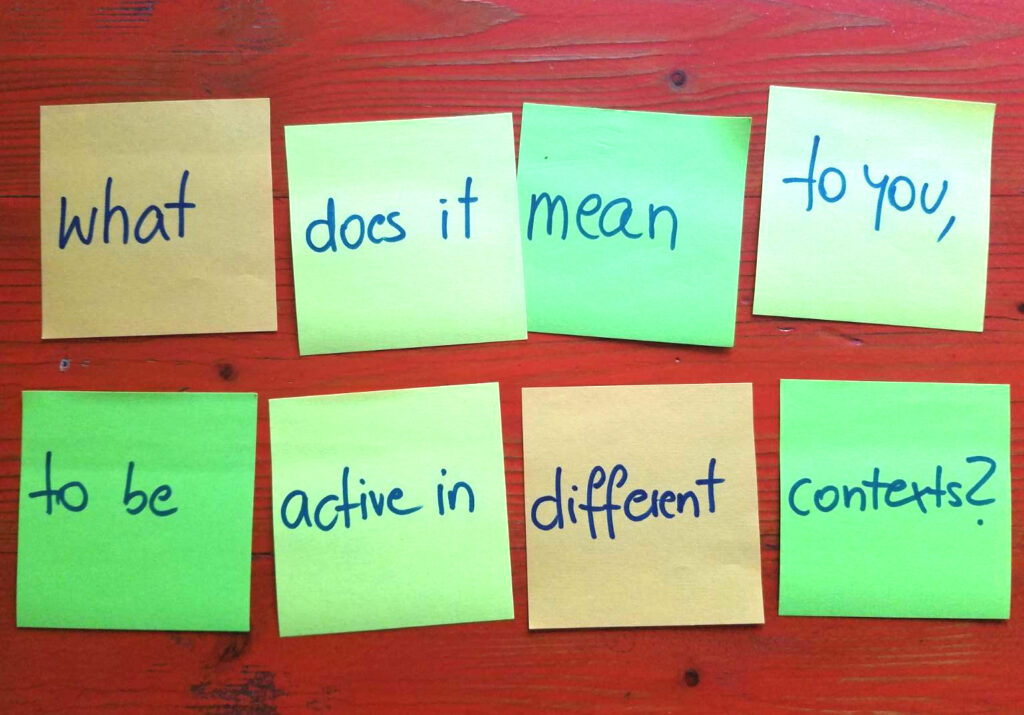 what does it mean to you,
to be active in different contexts?